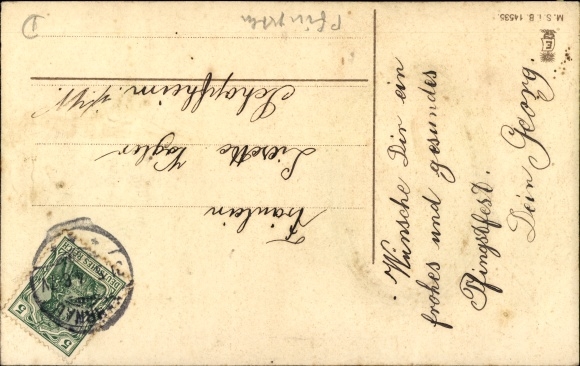 Fräulein
Lisette Vogler
Schopfheim
Wünsche Dir ein
frohes und gesundes
Pfingstfest.
Dein Georg.
M. S. i. B. 14535
Pfingsten
DEUTSCHES REICH
5 5